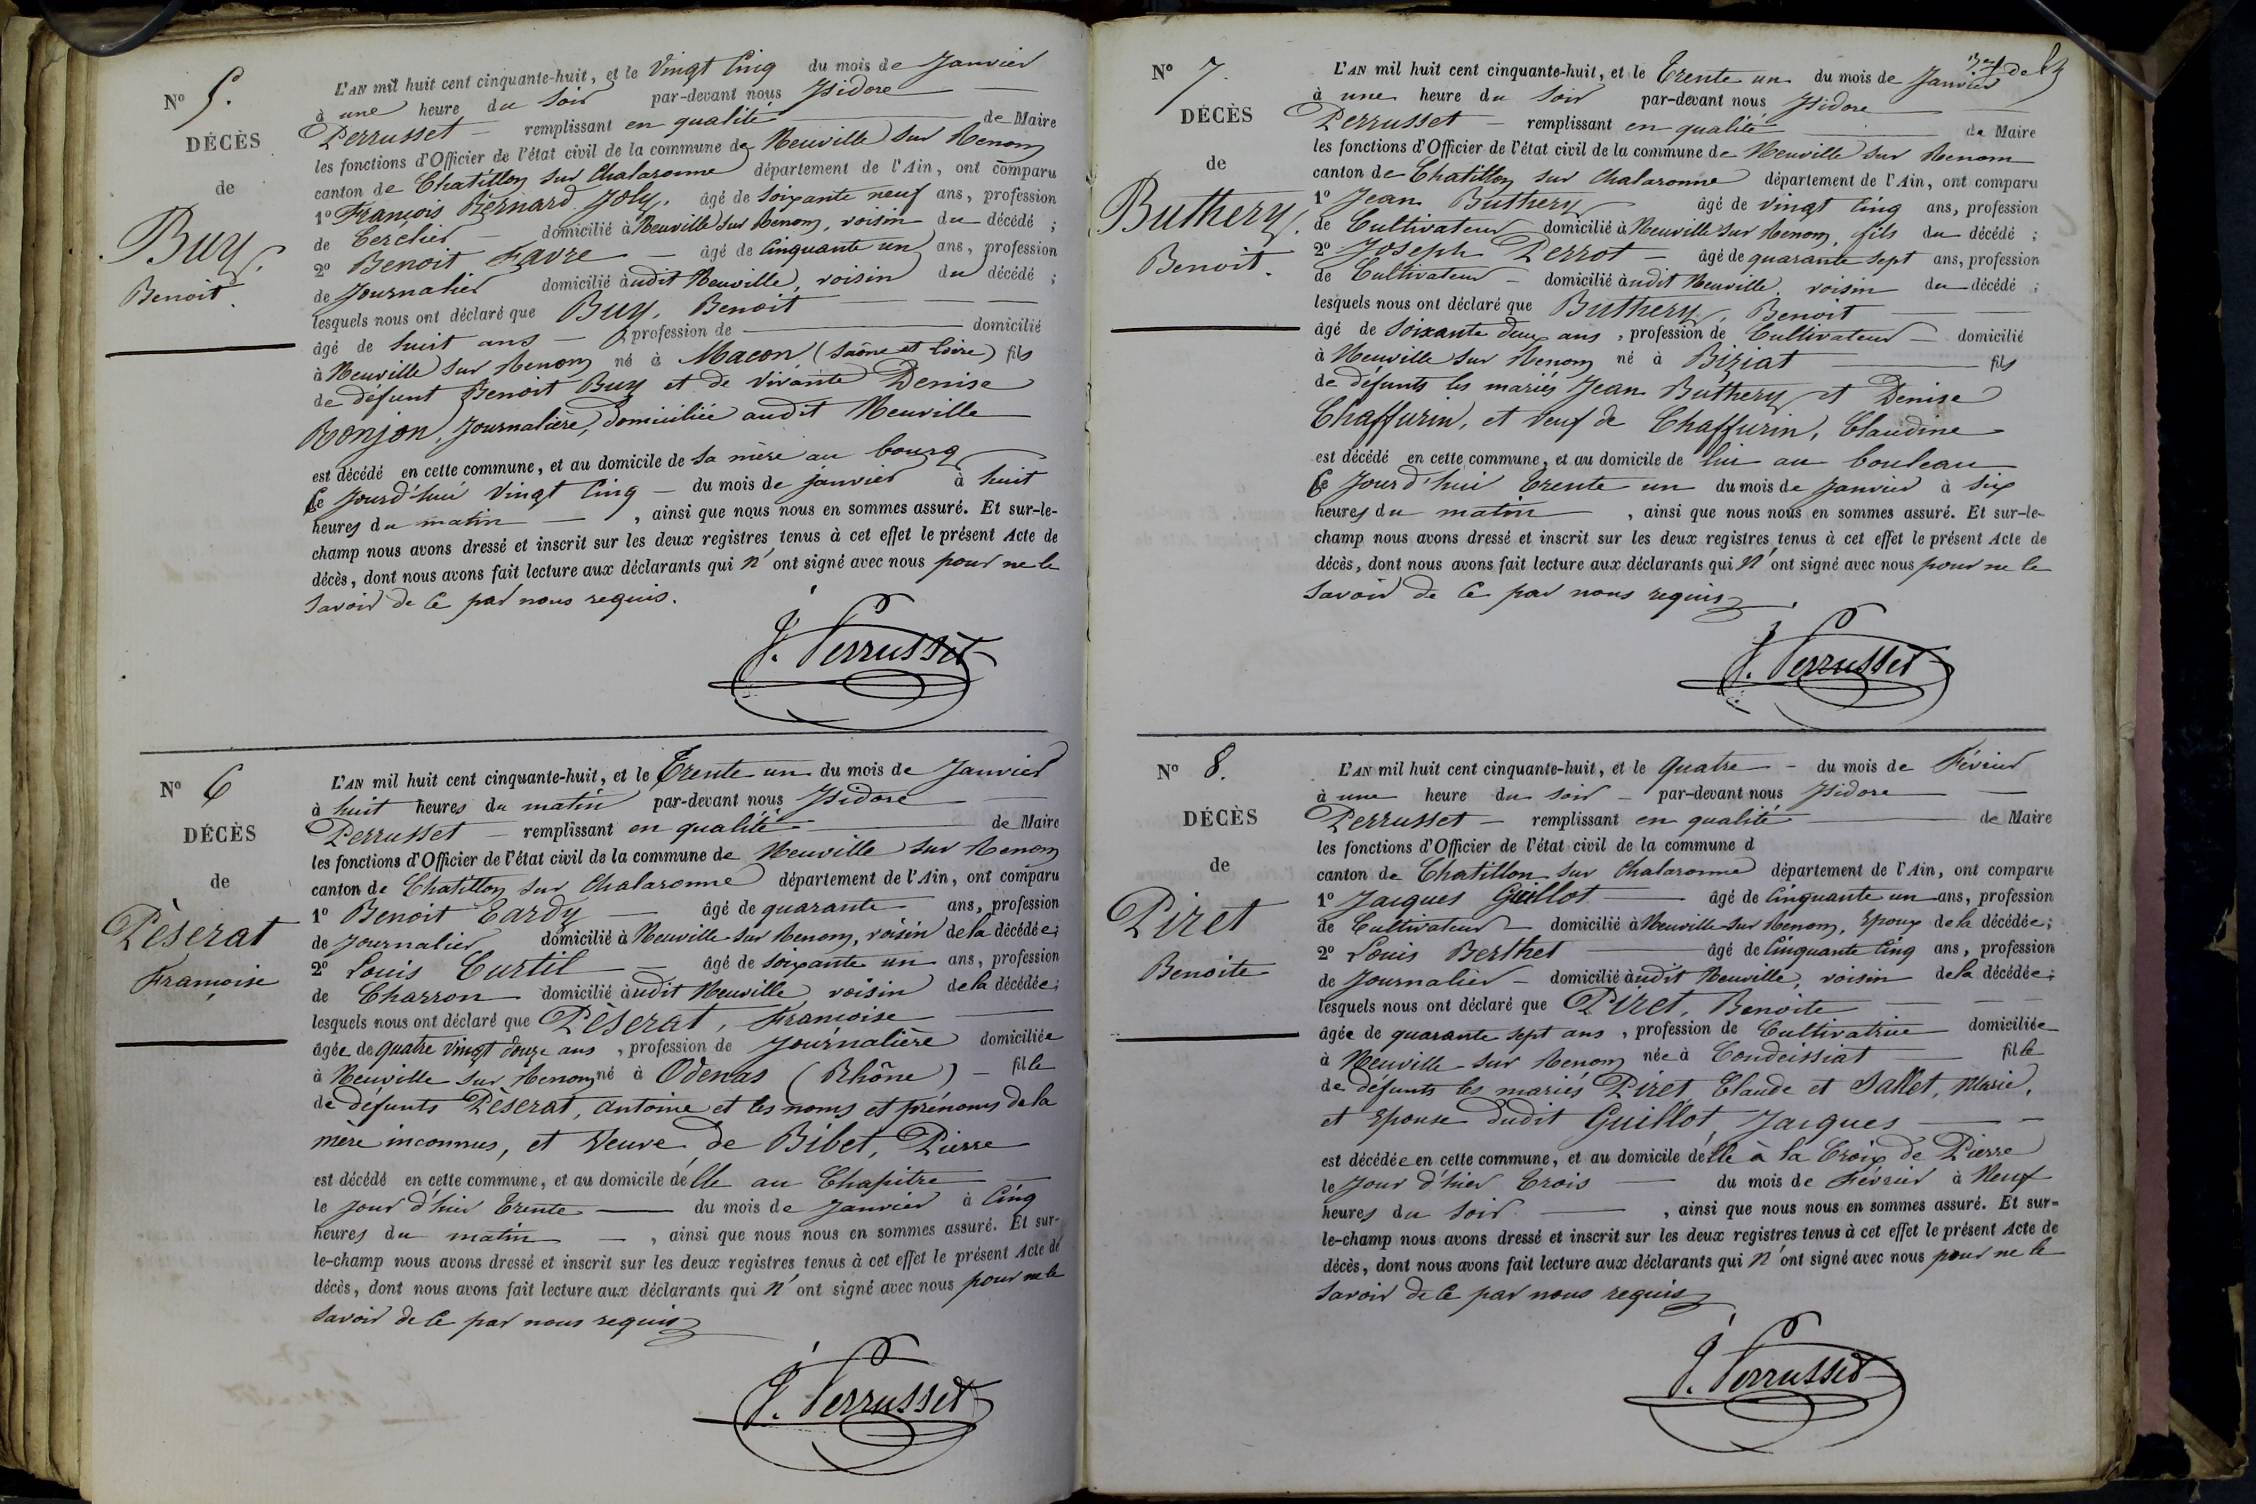 N° 5.
DÉCÈS
de
Buy,
Benoit.
L'AN mil huit cent cinquante-huit, et le Vingt Cinq du mois de Janvier
à une heure du Soir par-devant nous Isidore
Perrusset remplissant en qualité de Maire
les fonctions d'Officier de l'état civil de la commune de Neuville sur Renom
canton de Chatillon sur Chalaronne département de l'Ain, ont comparu
1° François Bernard Joly, âgé de Soixante neuf ans, profession
de Cerclier domicilié à Neuville sur Renom, voisin du décédé ;
2° Benoit Favre âgé de Cinquante un ans, profession
de Journalier domicilié àudit Neuville, voisin du décédé ;
lesquels nous ont déclaré que Buy, Benoit
âgé de huit ans profession de domicilié
à Neuville sur Renom né à Macon (Saône et Loire) fils
de défunt Benoit Buy et de vivante Denise
Ronjon, Journalière, domiciliée audit Neuville
est décédé en cette commune, et au domicile de sa mère au bourg
Ce Jourd'hui Vingt Cinq du mois de janvier à huit
heures du matin , ainsi que nous nous en sommes assuré. Et sur-le-
champ nous avons dressé et inscrit sur les deux registres tenus à cet effet le présent Acte de
décès, dont nous avons fait lecture aux déclarants qui n' ont signé avec nous pour ne le
Savoir de Ce par nous requis.
J. Perrusset
N° 6
DÉCÈS
de
Pèserat
Françoise
L'AN mil huit cent cinquante-huit, et le Trente un du mois de Janvier
à huit heures du matin par-devant nous Isidore
Perrusset remplissant en qualité de Maire
les fonctions d'Officier de l'état civil de la commune de Neuville sur Renom
canton de Chatillon sur Chalaronne département de l'Ain, ont comparu
1° Benoit Tardy âgé de quarante ans, profession
de Journalier domicilié à Neuville sur Renom, voisin de la décédée ;
2° Louis Curtil âgé de Soixante un ans, profession
de Charron domicilié àudit Neuville voisin de la décédée ;
lesquels nous ont déclaré que Pèserat, Françoise
âgée de quatre vingt douze ans , profession de Journalière domiciliée
à Neuville sur Renom né à Odenas (Rhône) fille
de défunts Pèserat, Antoine et les noms et prénoms de la
mère inconnus, et Veuve de Bibet, Pierre
est décédé en cette commune, et au domicile d'elle au Chapitre
le jour d'hier Trente du mois de Janvier à Cinq
heures du matin , ainsi que nous nous en sommes assuré. Et sur-
le-champ nous avons dressé et inscrit sur les deux registres tenus à cet effet le présent Acte de
décès, dont nous avons fait lecture aux déclarants qui n' ont signé avec nous pour ne le
Savoir de Ce par nous requis
J. Perrusset
N° 7
DÉCÈS
de
Buthery,
Benoit.
L'AN mil huit cent cinquante-huit, et le Trente un du mois de Janvier
à une heure du Soir par-devant nous Isidore
Perrusset remplissant en qualité de Maire
les fonctions d'Officier de l'état civil de la commune de Neuville sur Renom
canton de Chatillon sur Chalaronne département de l'Ain, ont comparu
1° Jean Buthery âgé de vingt Cinq ans, profession
de Cultivateur domicilié à Neuville sur Renom, fils du décédé ;
2° Joseph Perrot âgé de quarante sept ans, profession
de Cultivateur domicilié àudit Neuville, voisin du décédé ;
lesquels nous ont déclaré que Buthery, Benoit
âgé de Soixante deux ans , profession de Cultivateur domicilié
à Neuville sur Renom né à Biziat fils
de défunts les mariés Jean Buthery et Denise
Chaffurin, et veuf de Chaffurin, Claudine
est décédé en cette commune, et au domicile de lui au bouleau
Ce Jourd'hui Trente un du mois de Janvier à Six
heures du matin , ainsi que nous nous en sommes assuré. Et sur-le-
champ nous avons dressé et inscrit sur les deux registres tenus à cet effet le présent Acte de
décès, dont nous avons fait lecture aux déclarants qui n' ont signé avec nous pour ne le
Savoir de Ce par nous requis
J. Perrusset
N° 8.
DÉCÈS
de
Piret
Benoite
L'AN mil huit cent cinquante-huit, et le quatre du mois de Février
à une heure du soir par-devant nous Isidore
Perrusset remplissant en qualité de Maire
les fonctions d'Officier de l'état civil de la commune d
canton de Chatillon sur Chalaronne département de l'Ain, ont comparu
1° Jacques Guillot âgé de Cinquante un ans, profession
de Cultivateur domicilié à Neuville sur Renom, Epoux de la décédée ;
2° Louis Berthet âgé de Cinquante Cinq ans, profession
de Journalier domicilié àudit Neuville, voisin de la décédée ;
lesquels nous ont déclaré que Piret, Benoite
âgée de quarante sept ans , profession de Cultivatrice domiciliée
à Neuville sur Renom née à Condeissiat fille
de défunts les mariés Piret, Claude et Sallet, Marie,
et Epouse dudit Guillot Jacques
est décédée en cette commune, et au domicile d'elle à la Croix de Pierre
le Jour d'hier Trois du mois de Février à Neuf
heures du Soir , ainsi que nous nous en sommes assuré. Et sur-
le-champ nous avons dressé et inscrit sur les deux registres tenus à cet effet le présent Acte de
décès, dont nous avons fait lecture aux déclarants qui n' ont signé avec nous pour ne le
Savoir de Ce par nous requis
J. Perrusset